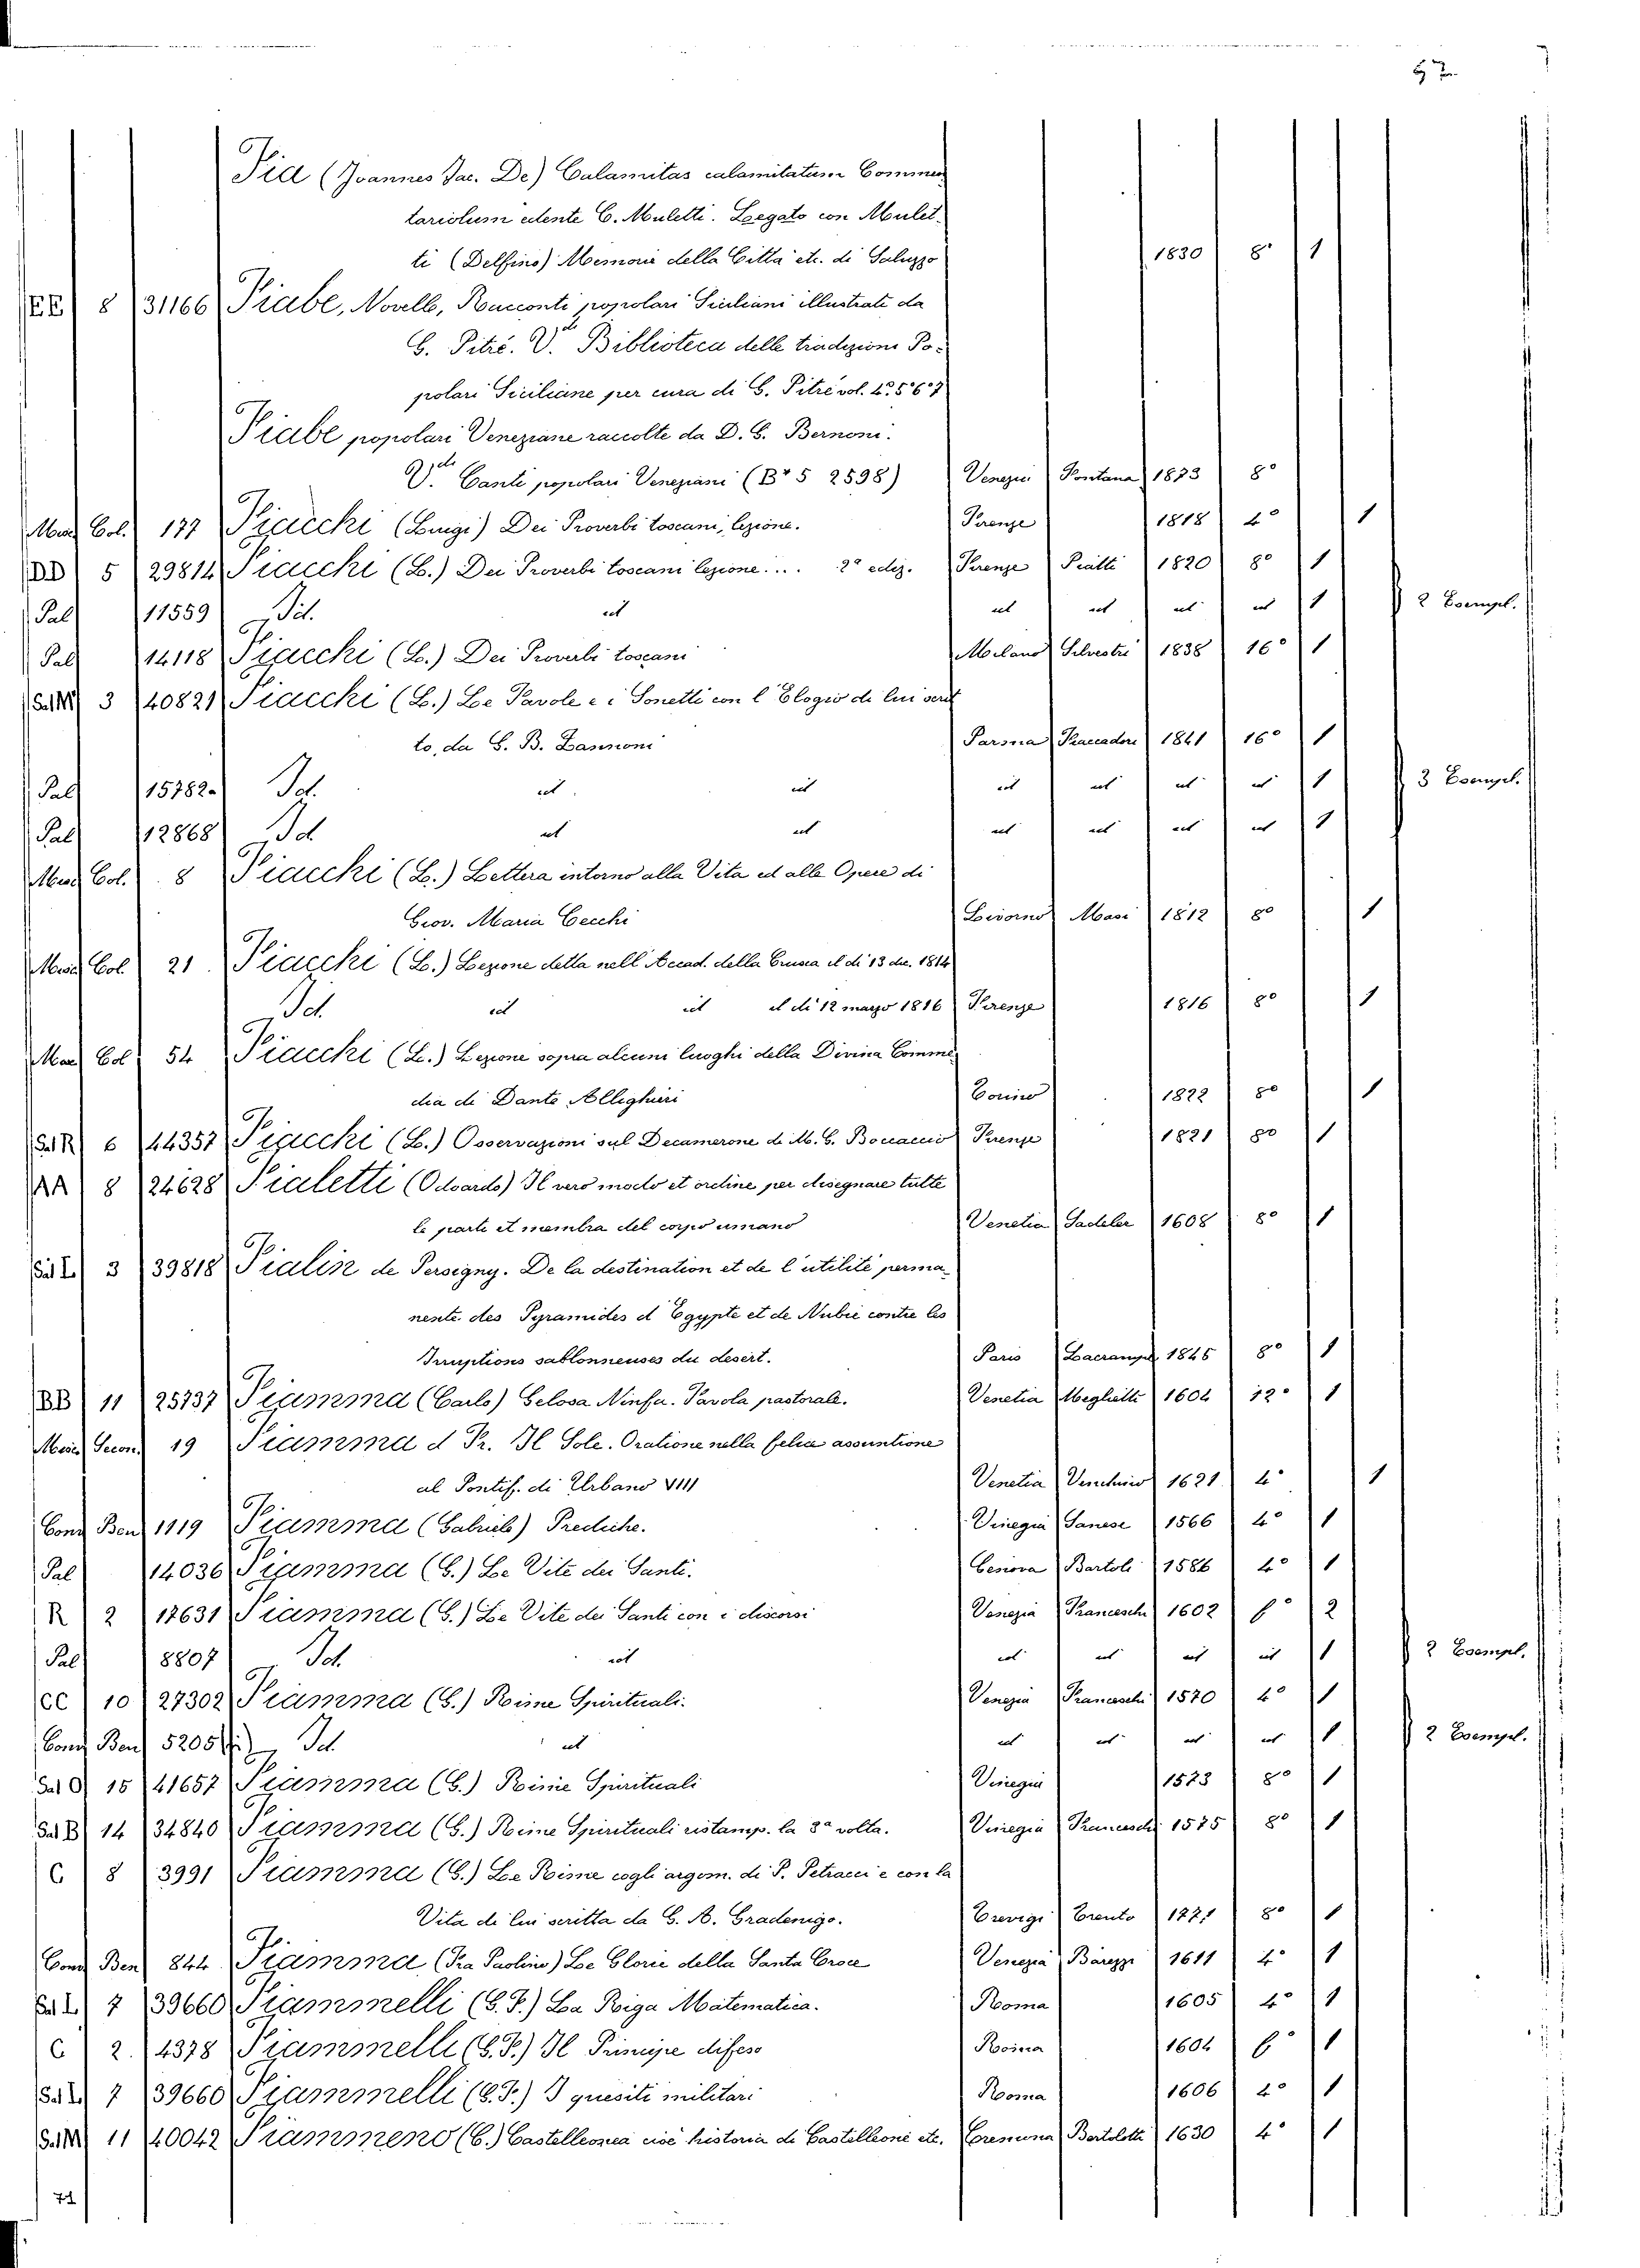 57
Fia (Joannes Jac. De) Calamitas calamitatum Commen
tariolum edente C. Muletti. Legato con Mulet-
ti (Delfino) Memorie della Città etc. di Saluzzo 1830 8° 1
EE 8 31166 Fiabe, Novelle, Racconti popolari Siciliani illustrati da
G. Pitrè. V. Biblioteca delle tradizioni Po-
polari Siciliane per cura di G. Pitrè vol. 4° 5° 6° 7
Fiabe popolari Veneziane raccolte da D. G. Bernoni.
V. Canti popolari Veneziani (B 5 2598) Venezia Fontana 1873 8°
Misc Col. 177 Fiacchi (Luigi) Dei Proverbi toscani, lezione. Firenze 1818 4° 1
DD 5 29814 Fiacchi (L.) Dei Proverbi toscani lezione.... 2a ediz. Firenze Piatti 1820 8° 1
Pal 11559 Id. id id id id id 1 2 Esempl.
Pal 14118 Fiacchi (L.) Dei Proverbi toscani Milano Silvestri 1838 16° 1
Sal M 3 40821 Fiacchi (L.) Le Favole e i Sonetti con l'Elogio di lui scrit
to, da G. B. Zannoni Parma Fiaccadori 1841 16° 1
Pal 15782 Id. id id id id id id 1 3 Esempl.
Pal 12868 Id id id id id id id 1
Misc Col. 8 Fiacchi (L.) Lettera intorno alla Vita ed alle Opere di
Giov. Maria Cecchi Livorno Masi 1812 8° 1
Misc Col. 21 Fiacchi (L.) Lezione detta nell'Accad. della Crusca il dì 13 dic. 1814
Id. id id il dì 12 marzo 1816 Firenze 1816 8° 1
Misc Col 54 Fiacchi (L.) Lezione sopra alcuni luoghi della Divina Comme
dia di Dante Allighieri Torino 1822 8° 1
Sal R 6 44357 Fiacchi (L.) Osservazioni sul Decamerone di M. G. Boccaccio Firenze 1821 8° 1
AA 8 24628 Fialetti (Odoardo) Il vero modo et ordine per disegnare tutte
le parti et membra del corpo umano Venetia Sadeler 1608 8° 1
Sal L 3 39818 Fialin de Persigny. De la destination et de l'utilité perma
nente des Pyramides d'Egypte et de Nubie contre les
Irruptions sablonneuses du desert. Paris 1845 8° 1
BB 11 25737 Fiamma (Carlo) Gelosa Ninfa. Favola pastorale. Venetia Meglietti 1604 12° 1
Misc Secon. 19 Fiamma d Fr. Il Sole. Oratione nella felice assuntione
al Pontif. di Urbano VIII Venetia 1621 4° 1
Conv Ben 1119 Fiamma (Gabriele) Prediche. Vinegia Sanese 1566 4° 1
Pal 14036 Fiamma (G.) Le Vite dei Santi. Genova Bartoli 1586 4° 1
R 2 17631 Fiamma (G.) Le Vite dei Santi con i discorsi Venezia Franceschi 1602 f° 2
Pal 8807 Id. id id id id id 1 2 Esempl.
CC 10 27302 Fiamma (G.) Rime Spirituali. Venezia Franceschi 1570 4° 1
Conv Ben 5205 Id id id id id id 1 2 Esempl.
Sal O 15 41657 Fiamma (G.) Rime Spirituali Vinegia 1573 8° 1
Sal B 14 34840 Fiamma (G.) Rime Spirituali ristamp. la 3a volta. Vinegia Franceschi 1575 8° 1
C 8 3991 Fiamma (G.) Le Rime cogli argom. di P. Petracci e con la
Vita di lui scritta da G. A. Gradenigo. Trevigi Trento 1771 8° 1
Conv Ben 844 Fiamma (Fra Paolino) Le Glorie della Santa Croce Venezia Barezzi 1611 4° 1
Sal L 7 39660 Fiammelli (G. F.) La Riga Matematica. Roma 1605 4° 1
C 2. 4378 Fiammelli (G. F.) Il Principe difeso Roma 1604 f° 1
Sal L 7 39660 Fiammelli (G. F.) I quesiti militari Roma 1606 4° 1
Sal M 11 40042 Fiammeno (C.) Castelleonea cioè historia di Castelleone etc. Cremona Bertolotti 1630 4° 1